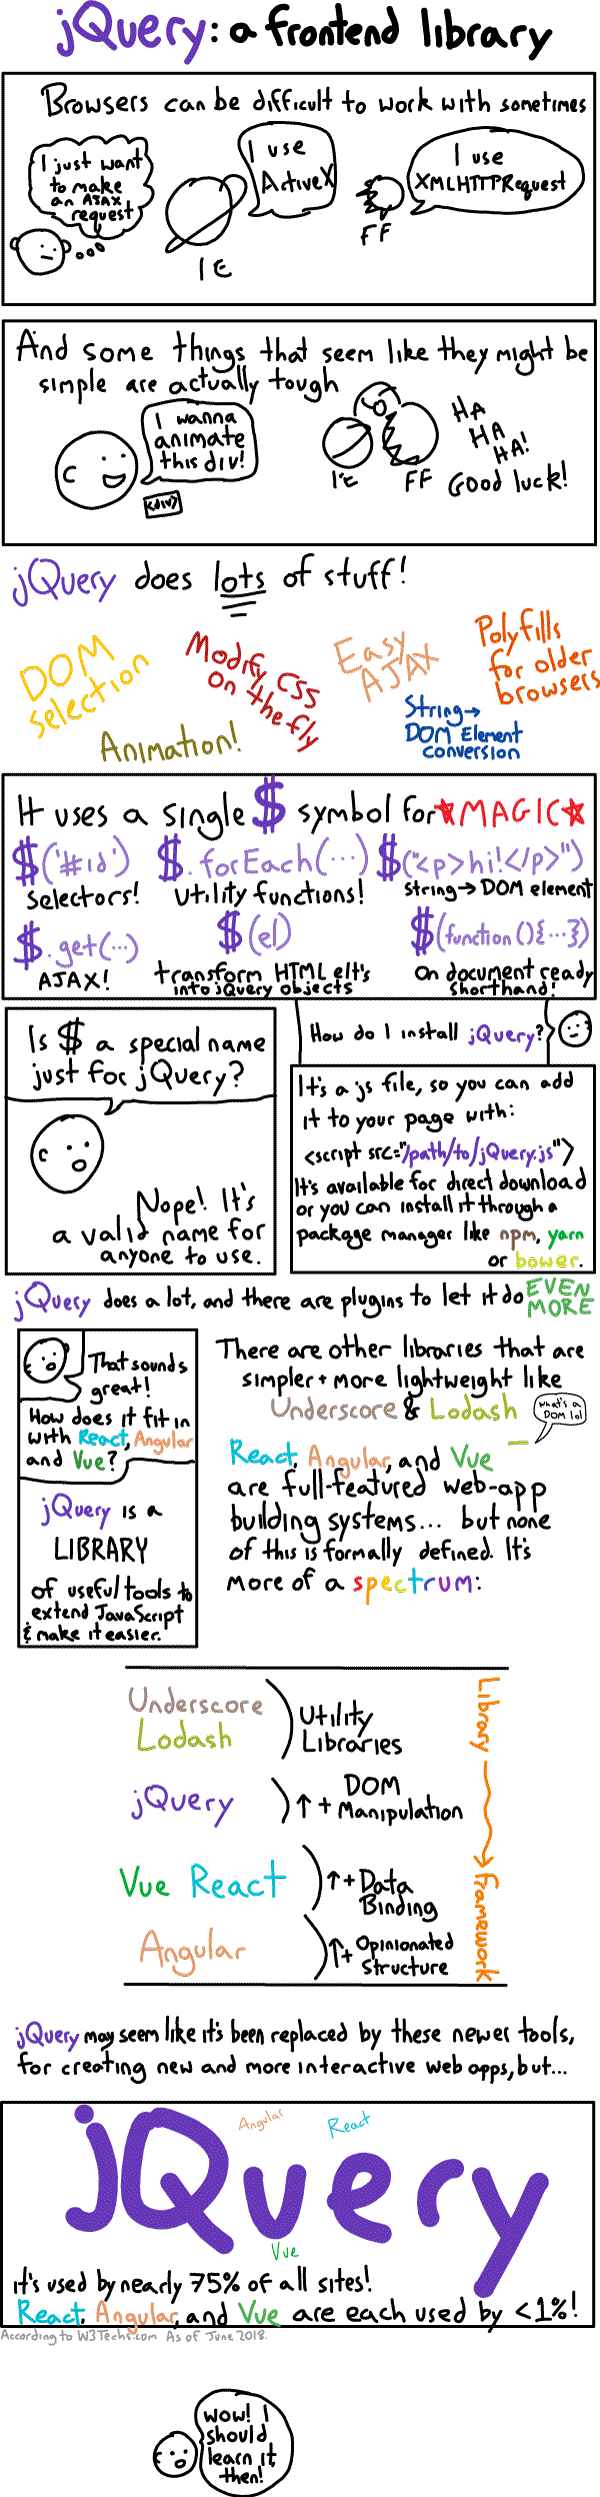 jQuery: a frontend library
Browsers can be difficult to work with sometimes
I just want
to make
an AJAX
request
I use
ActiveX
I use
XMLHTTPRequest
IE
FF
And some things that seem like they might be
simple are actually tough
I wanna
animate
this div!
<div>
IE
FF
HA
HA
HA!
Good luck!
jQuery does lots of stuff!
DOM
Selection
Modify CSS
on the fly
Easy
AJAX
Polyfills
for older
browsers
Animation!
String→
DOM Element
conversion
It uses a single $ symbol for ★MAGIC★
$('#id')
Selectors!
$.forEach(...)
Utility functions!
$("<p>hi!</p>")
String→DOM element
$.get(...)
AJAX!
$(el)
transform HTML elt's
into jQuery objects
$(function(){...})
On document ready
shorthand!
Is $ a special name
just for jQuery?
Nope! It's
a valid name for
anyone to use.
How do I install jQuery?
It's a js file, so you can add
it to your page with:
<script src="/path/to/jQuery.js">
It's available for direct download
or you can install it through a
package manager like npm, yarn
or bower.
jQuery does a lot, and there are plugins to let it do EVEN
MORE
That sounds
great!
How does it fit in
with React, Angular
and Vue?
jQuery is a
LIBRARY
of useful tools to
extend JavaScript
& make it easier.
There are other libraries that are
simpler + more lightweight like
Underscore & Lodash
What's a
DOM lol
React, Angular, and Vue
are full-featured web-app
building systems... but none
of this is formally defined. It's
more of a spectrum:
Underscore
Lodash
Utility
Libraries
jQuery
↑ + DOM
Manipulation
Vue React
↑ + Data
Binding
Angular
↑ + Opinionated
Structure
Library → Framework
jQuery may seem like it's been replaced by these newer tools,
for creating new and more interactive web apps, but...
Angular
React
jQuery
Vue
it's used by nearly 75% of all sites!
React, Angular, and Vue are each used by <1%!
According to W3Techs.com As of June 2018.
Wow! I
should
learn it
then!